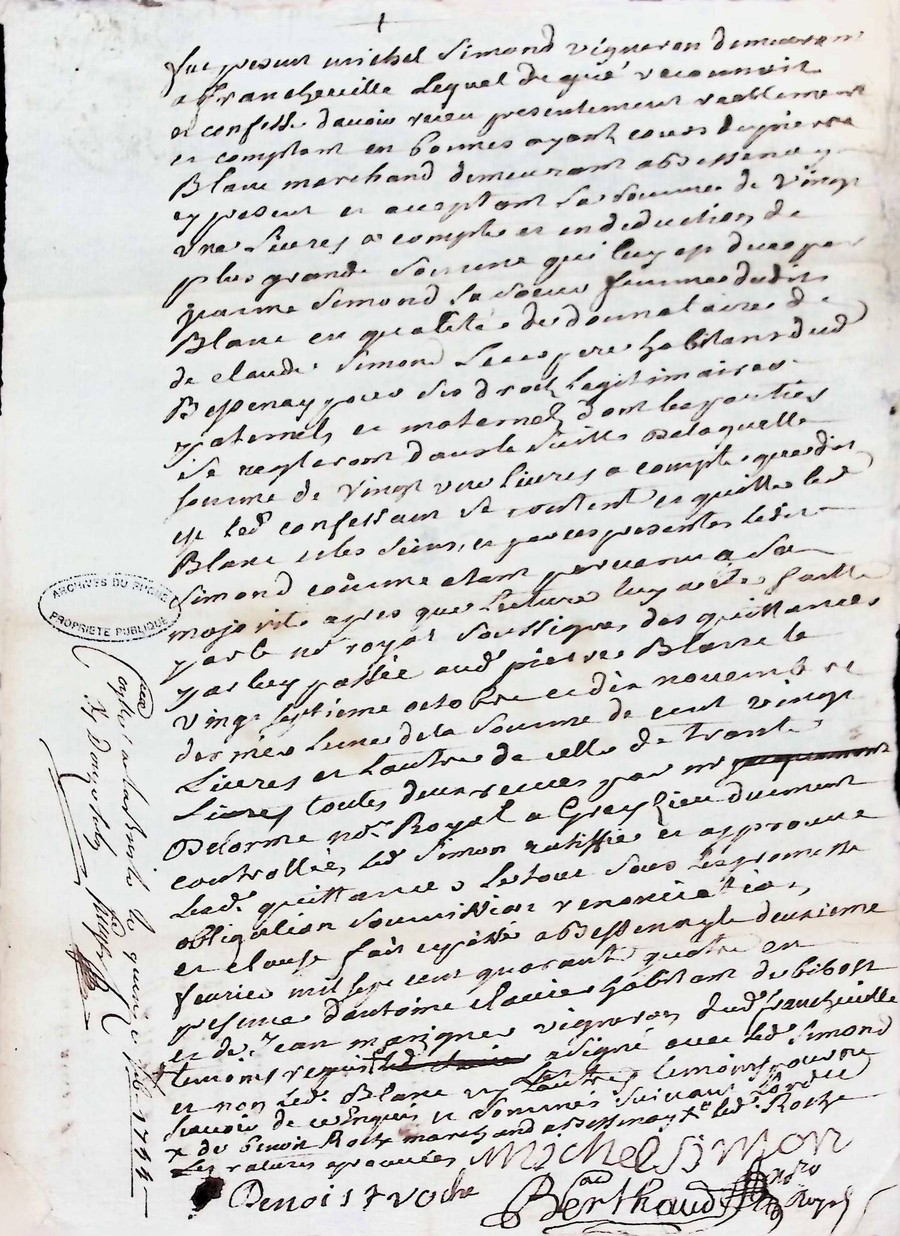 fut present michel Simond vigneron demeurant
a francheville Lequel de gré reconnoit
et confesse d'avoir receu presentement reellement
et comptant en bonnes ayant cours de pierre
Blanc marchand demeurant a Bessenay
cy present et acceptant la somme de vingt
une livres a compte et en deduction de
plus grande somme qui luy est due par
Simond sa soeur femme dudit
Blanc en qualité de donnataire de
de claude Simond Leur pere habitant dud
Bessenay pour ses droits Legitimaires
paternels et maternels dont les parties
se regleront dans la suitte De laquelle
somme de vingt une livres a compte que dit
est led confessant se contente et quitte led
Blanc et les siens, et par ces presentes led
Simond comme etant parvenu a sa
majorité apres que lecture luy a été faitte
par le nore royal soussigné des quittances
par luy passée aud pierre Blanc le
vingt septieme octobre et dix novembre
dernier Lune de la somme de cent vingt
Livres et Lautre de celle de trante
Livres toutes deux receues par me
Delorme nore Royal a
controllée, led Simon ratiffie et approuve
Lesd quittances Le tout sous les promesse
obligation soumission renonciation
et clause fait et passé a Bessenay le deuxieme
fevrier mil sept cent quarant quatre en
presence d'antoine habitant de bibost
et de jean vigneron dud francheville
temoins requis a signé avec led Simond
et non led Blanc ny Lautre temoins pour ne
scavoir de ce enquis et sommés suivant Lordce
x de benoit Roche marchand a Bessenay x led Roche
Les ratures aprouvées Michel Simon
Benoist roche
Berthaud no Royal
ARCHIVES DU RHONE
PROPRIETE PUBLIQUE
le quinze feb. 1744